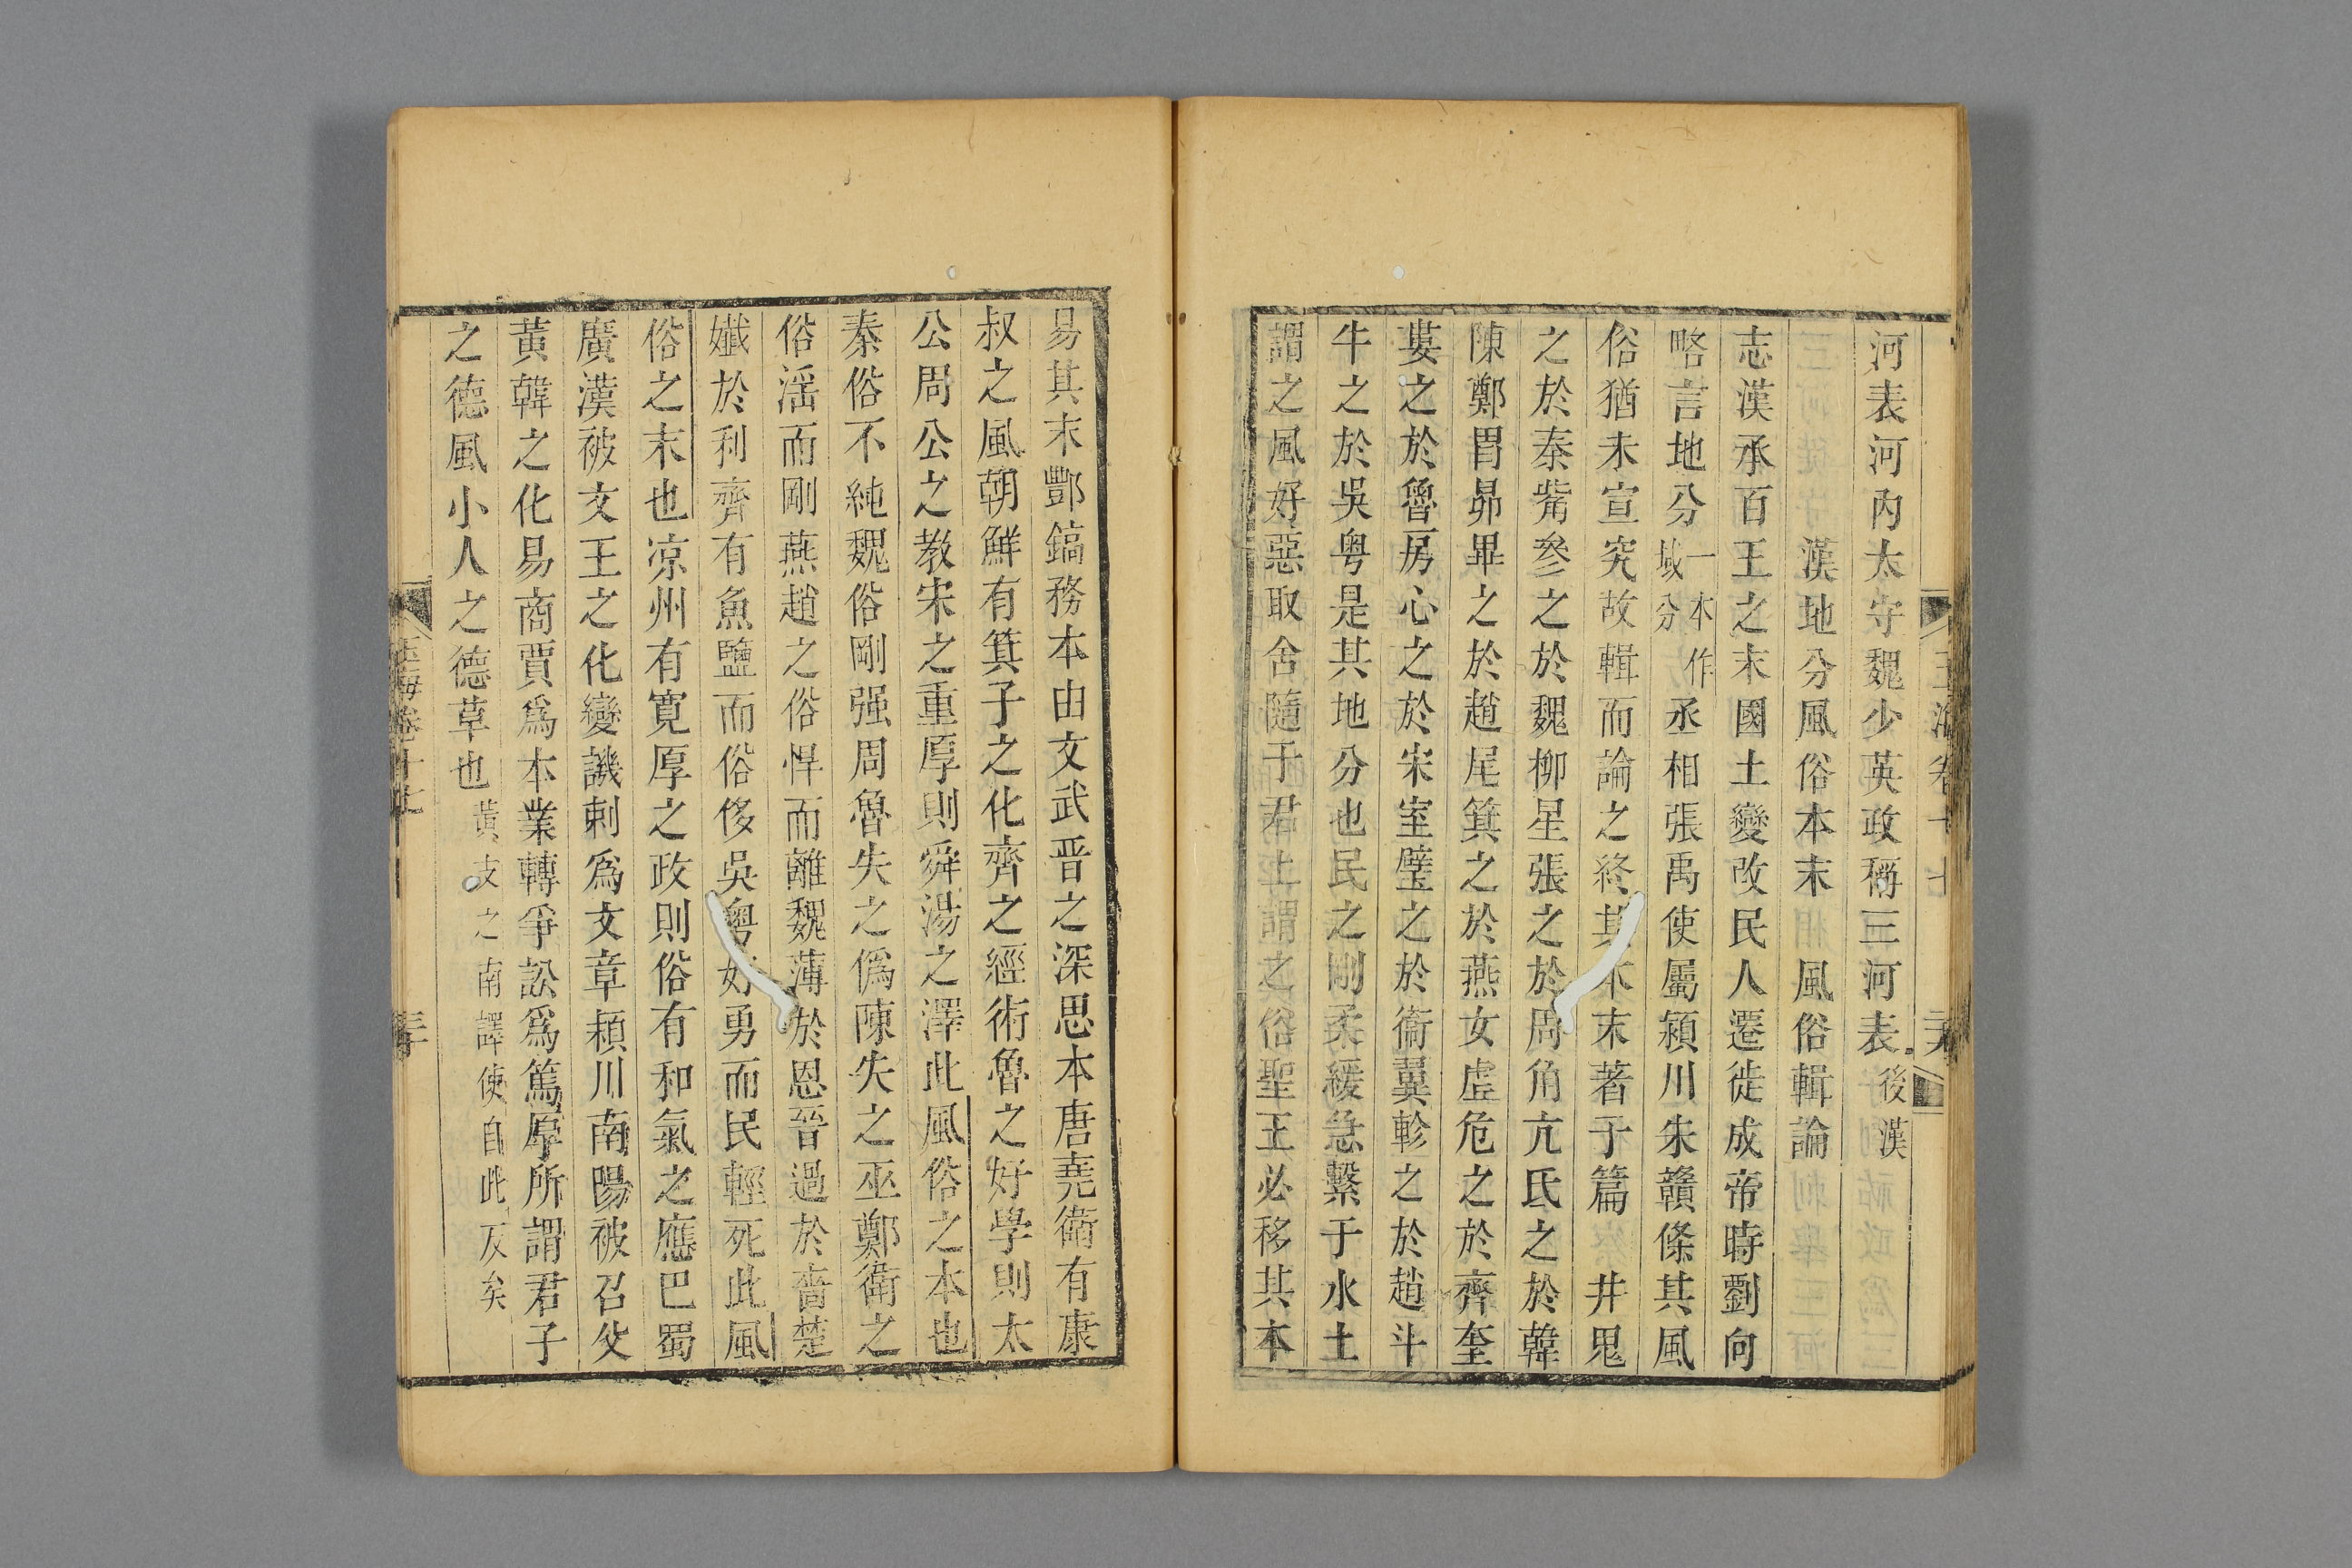 玉海卷十七 二十九
河表河內太守魏少英政稱三河表後漢
漢地分風俗本末 風俗輯論
志漢承百王之末國土變改民人遷徙成帝時劉向
略言地分一本作域分丞相張禹使屬潁川朱贛條其風
俗猶未宣究故輯而論之終其本末著于篇 井鬼
之於秦觜參之於魏柳星張之於周角亢氐之於韓
陳鄭胃昴畢之於趙尾箕之於燕女虛危之於齊奎
婁之於魯房心之於宋室壁之於衞翼軫之於趙斗
牛之於吳粤是其地分也民之剛柔緩急繫于水土
謂之風好惡取舍隨于君上謂之俗聖王必移其本
易其末酆鎬務本由文武晋之深思本唐堯衛有康
叔之風朝鮮有箕子之化齊之經術魯之好學則太
公周公之教宋之重厚則舜湯之澤此風俗之本也
秦俗不純魏俗剛强周魯失之僞陳失之巫鄭衛之
俗滛而剛燕趙之俗悍而離魏薄於恩晉過於嗇楚
孅於利齊有魚鹽而俗侈吳粤好勇而民輕死此風
俗之末也凉州有寛厚之政則俗有和氣之應巴蜀
廣漢被文王之化變譏刺爲文章潁川南陽被召父
黃韓之化易商賈爲本業轉爭訟爲篤厚所謂君子
之德風小人之德草也黃支之南譯使自此反矣
玉海卷十七 三十